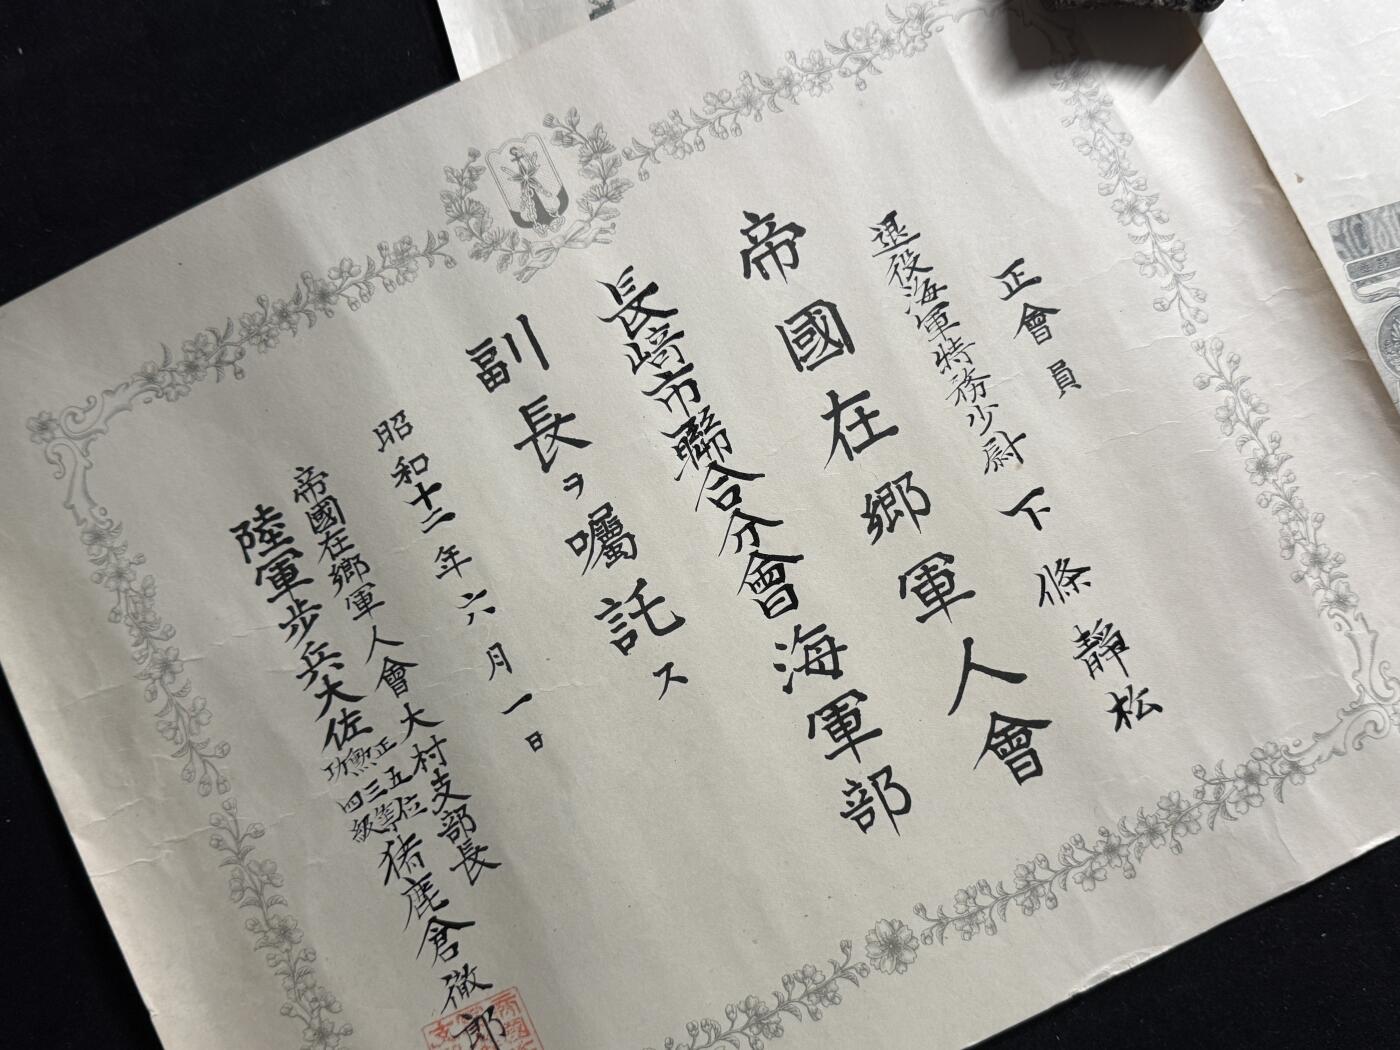 正會員
退役海軍特務少尉 下條靜松
帝國在郷軍人會
長﨑市聯合分會海軍部
副長ヲ囑託ス
昭和十二年六月一日
帝國在郷軍人會大村支部長
陸軍步兵大佐 正五位 勲三等 功四級 猪鹿倉徹郎